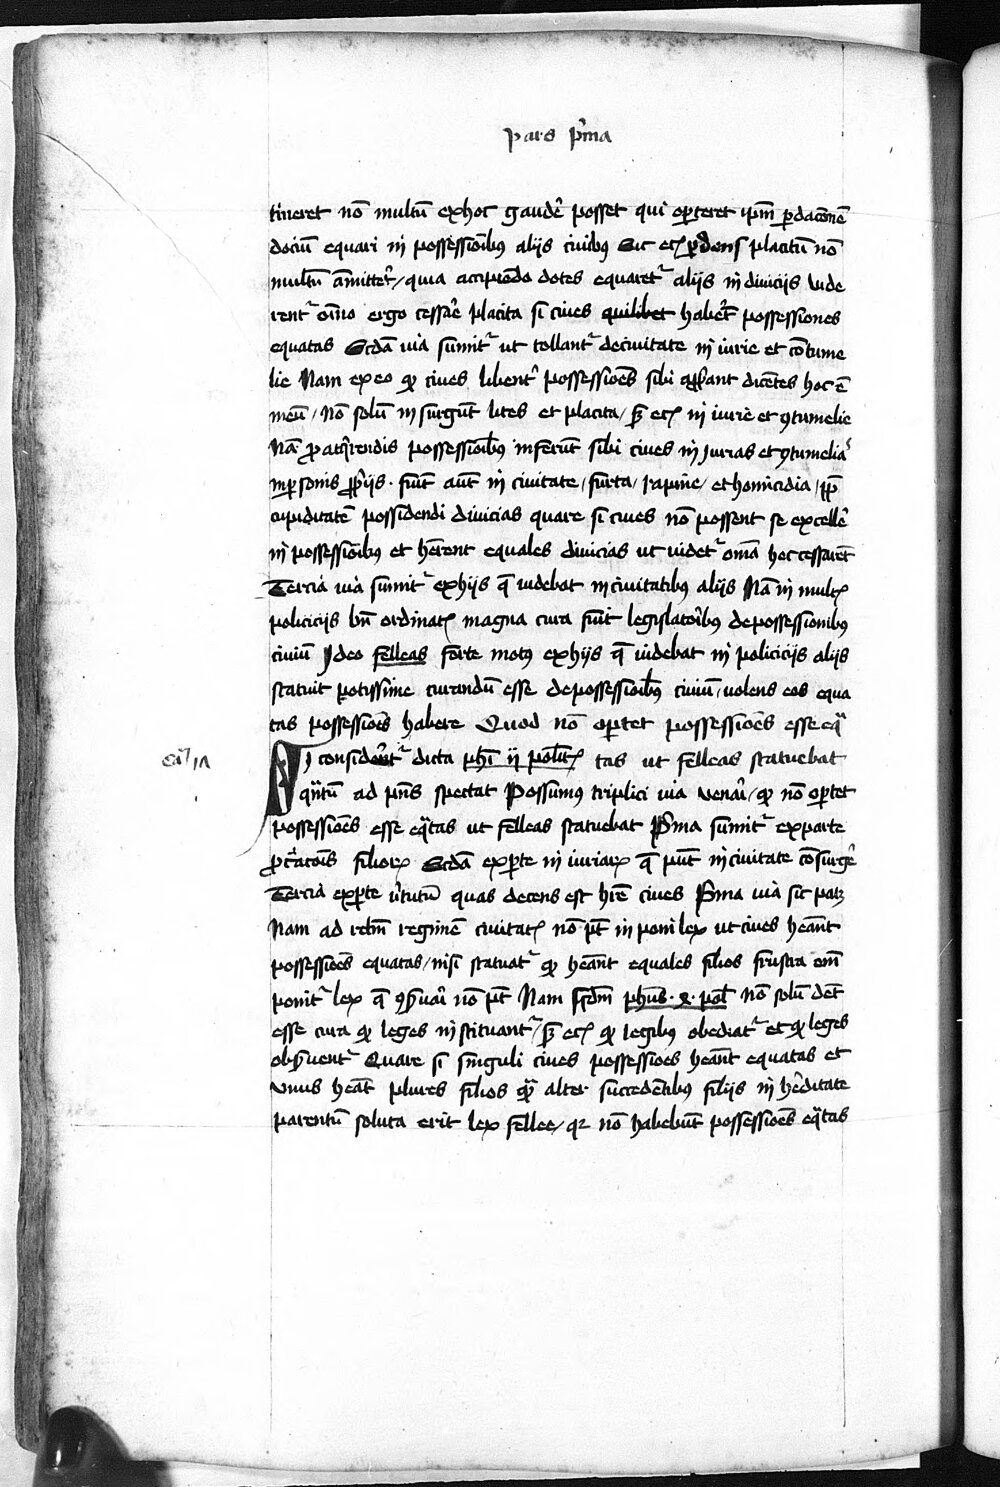 Pars p̃ma
tineret nō multū exhoc gaudē posset qui oporteret ip̄m ꝑdac̄onē
dociū equari in possessiōibus alijs ciuibus Sic etꝫ ꝑdens placitū nō
multū āmitteret / quia accipiendo dotes equaretᷣ alijs in diuicijs vide
rentᷣ oīno ergo cessar̄e placita si ciues quilibet haber̄t possessiones
equatas Sc̄da via sumitᷣ ut tollantᷣ deciuitate iniurie et cōtume
lie Nam ex eo qꝫ ciues libentᷣ possessiōes sibi dicētes hoc ē
meū / nō solū insurgūt lites et placita / sꝫ etꝫ iniurie et ꝯtumelie
Nā ꝓ acq̄rendis possessiōibus inferūt sibi ciues iniurias et ꝯtumelias
inꝑsonis ꝓprijs · fiūt aūt in ciuitate / furta / rapine / et homicidia / ꝓpt̄
cupiditatē possidendi diuicias quare si ciues nō possent se excellē
in possessiōibus et hērent equales diuicias ut videtᷣ om̄ia hec cessarēt
Tercia via sumitᷣ exhijs q̄ videbat inciuitatibus alijs Nā in multꝫ
policicijs bn̄ ordinatꝫ magna cura fuit legislatoribus depossessionibus
ciuiū Ideo felleas forte motus exhijs q̄ videbat in policicijs alijs
statuit potissime curandū esse depossessiōibus ciuiū / volens eos equa
tas possessiōes habere Quod nō oportet possessiōes esse eq̄
Si considerentᷣ dicta ph̄i ij polit̄ꝫ tas ut felleas statuebat
caᵐ
qᷓntū ad p̄ns spectat Possumus triplici via venari / qꝫ nō oportet
possessiōes esse eqᷓtas ut felleas statuebat P̄ma sumitᷣ exparte
ꝓcᷓatiōis filioꝝ Sc̄da exꝑte iniuriaꝝ q̄ pn̄t inciuitate cōsurgē
Tercia exꝑte v̄tutū quas decens est hr̄e ciues P̄ma via sic patꝫ
Nam ad rectū regimē ciuitatꝫ nō pt̄ inponi lex ut ciues heāt
possessiōes equatas / nisi statuatᷣ qꝫ heāt equales filios frustra em̄
ponitᷣ lex q̄ ꝯseruari nō pt̄ Nam scd̄m ph̄us · 2 · pol̄ nō solū det̄
esse cura qꝫ leges instituantᷣ / sꝫ etꝫ qꝫ legibus obediatᷣ et qꝫ leges
obseruentᷣ Quare si singuli ciues possessiōes heāt equatas et
vnus heāt plures filios qᷓ alter succedētibus filijs in hēditate
parentū soluta erit lex fellee / qꝛ nō habebūt possessiōes eqᷓtas